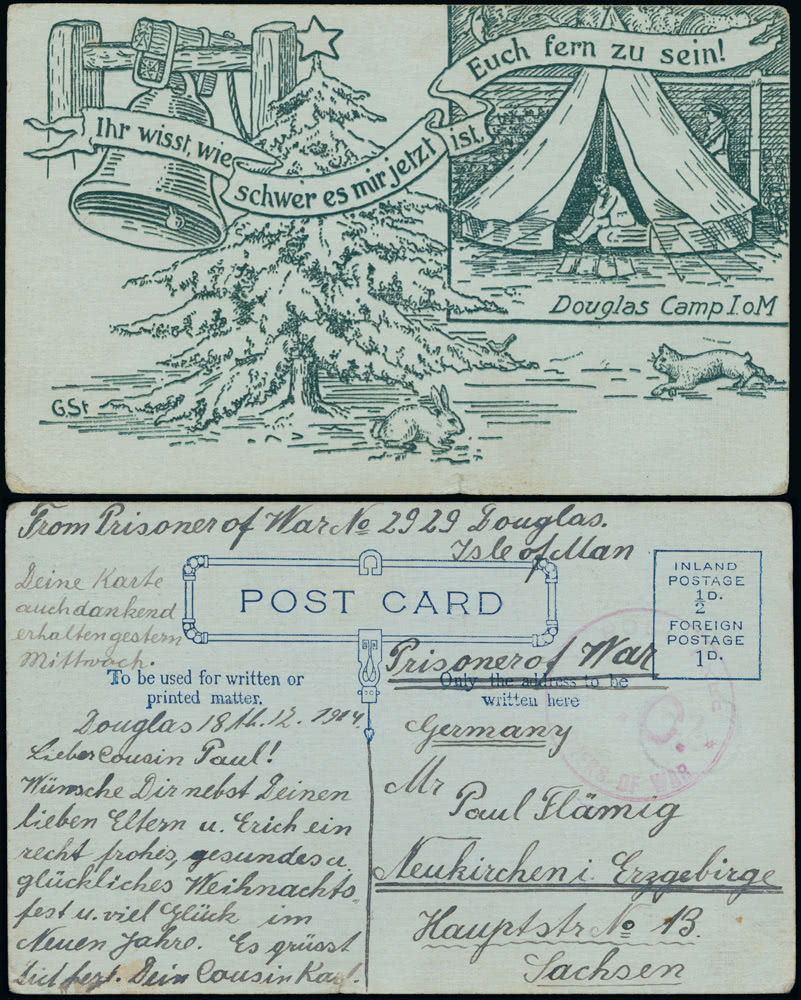 Ihr wisst, wie
schwer es mir jetzt
ist,
Euch fern zu sein!
Douglas Camp I.oM
G.St
From Prisoner of War No 2929 Douglas.
Isle of Man
Deine Karte
auch dankend
erhalten gestern
Mittwoch.
POST CARD
INLAND
POSTAGE
½D.
FOREIGN
POSTAGE
1D.
To be used for written or
printed matter.
Only the address to be
written here
Prisoner of War
OF WAR
Douglas 18 12. 1914.
Lieber Cousin Paul!
Wünsche Dir nebst Deinen
lieben Eltern u. Erich ein
recht frohes, gesundes u.
glückliches Weihnachts-
fest u. viel Glück im
Neuen Jahre. Es grüsst
Dich herzl. Dein Cousin Karl.
Germany
Mr
Paul Flämig
Neukirchen i. Erzgebirge
Hauptstr No 13.
Sachsen